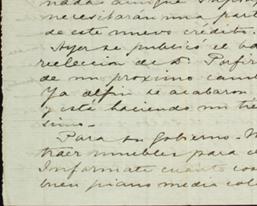 nada aunque
necesitaran una part
de este nuevo crédito.
Ayer se publicó el ba
reelección de D. Porfir
de un proximo camb
Ya al fin se acabaron
y esté haciendo un tie
simo.
Para su gobierno. M
traer muebles para c
Informate cuanto cos
buen piano media col